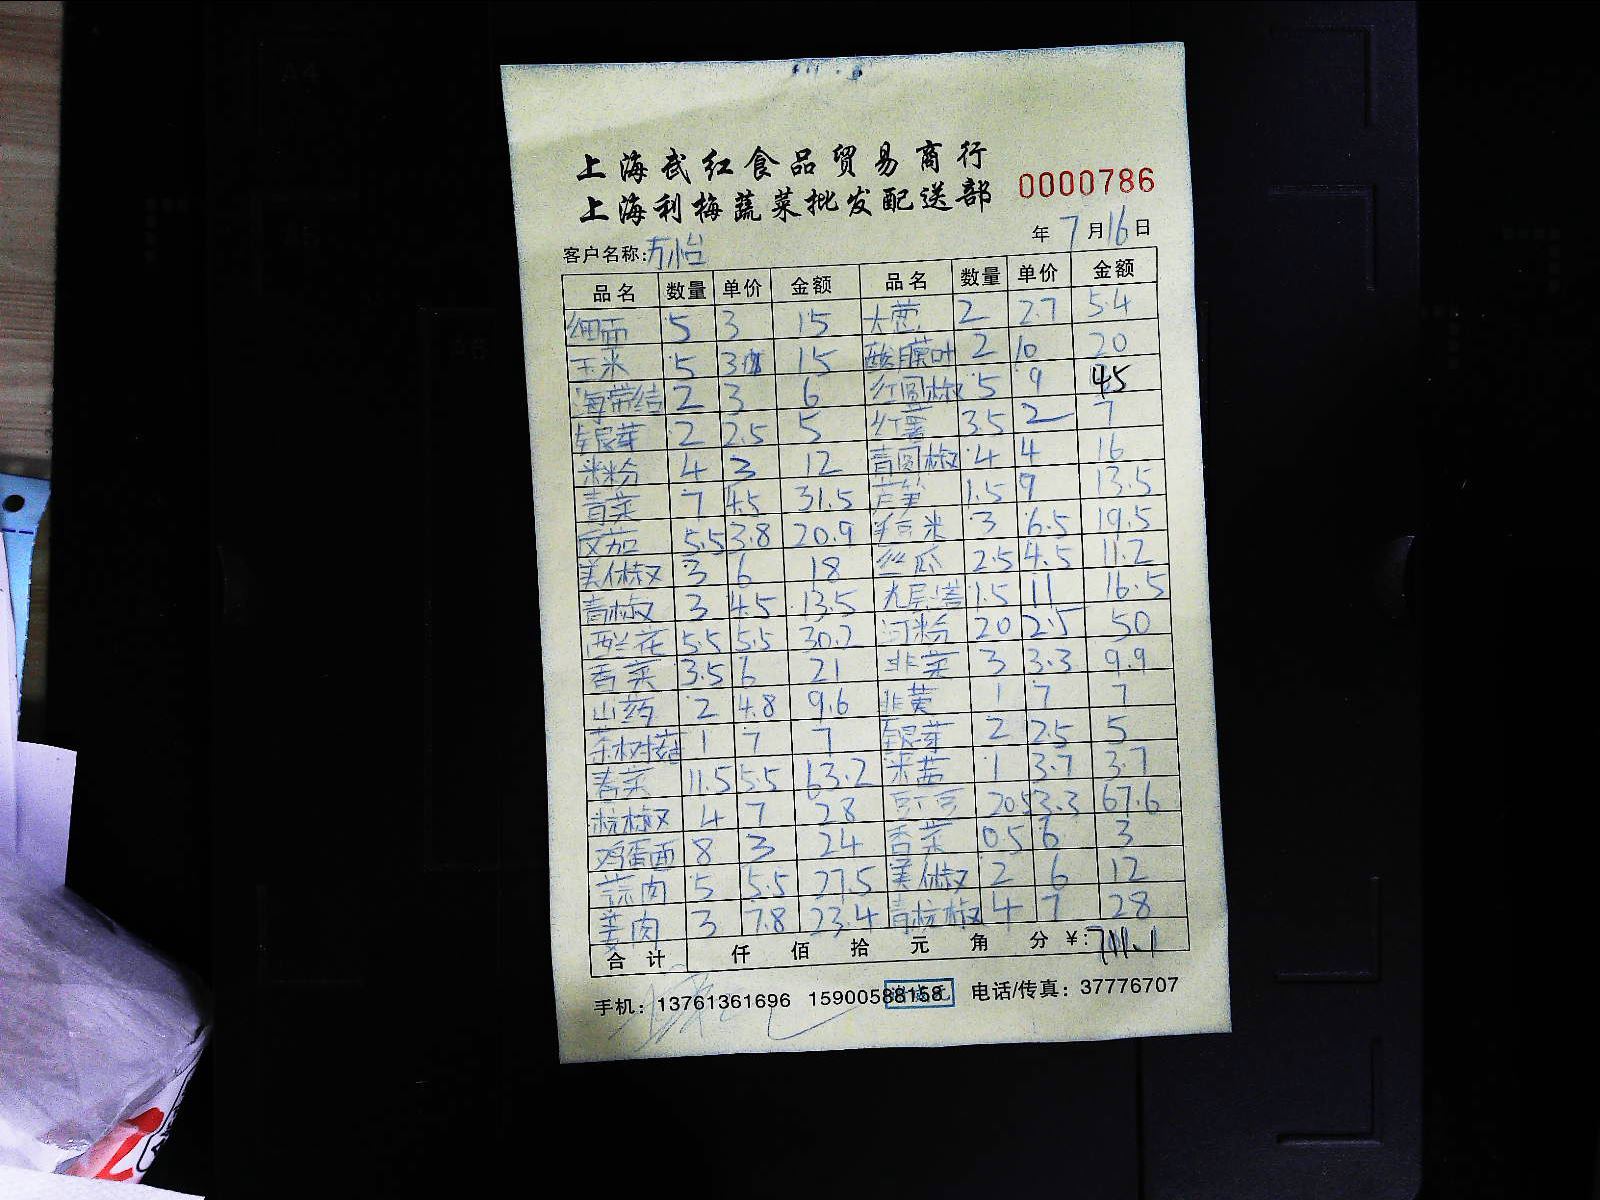 上海武红食品贸易商行
上海利梅蔬菜批发配送部 0000786
年 7 月 16 日
客户名称:方怡
品名 数量 单价 金额 品名 数量 单价 金额
细面 5 3 15 大葱 2 2.7 5.4
玉米 5 3 15 酸膜叶 2 10 20
海带结 2 3 6 红圆椒 5 9 45
银芽 2 2.5 5 红薯 3.5 2 7
米粉 4 3 12 青圆椒 4 4 16
青菜 7 4.5 31.5 芦笋 1.5 9 13.5
反茄 5.5 3.8 20.9 米 3 6.5 19.5
美休椒 3 6 18 丝瓜 2.5 4.5 11.2
青椒 3 4.5 13.5 九层塔 1.5 11 16.5
西兰花 5.5 5.5 30.2 河粉 20 2.5 50
香菜 3.5 6 21 韭菜 3 3.3 9.9
山药 2 4.8 9.6 韭黄 1 7 7
茶树菇 1 7 7 银芽 2 2.5 5
11.5 5.5 63.2 米茜 1 3.7 3.7
杭椒 4 7 28 豇豆 20.5 3.3 67.6
鸡蛋面 8 3 24 香菜 0.5 6 3
蒜肉 5 5.5 27.5 美休椒 2 6 12
姜肉 3 7.8 23.4 青杭椒 4 7 28
合计 仟 佰 拾 元 角 分 ¥:711.1
手机：13761361696 15900588158 电话/传真：37776707